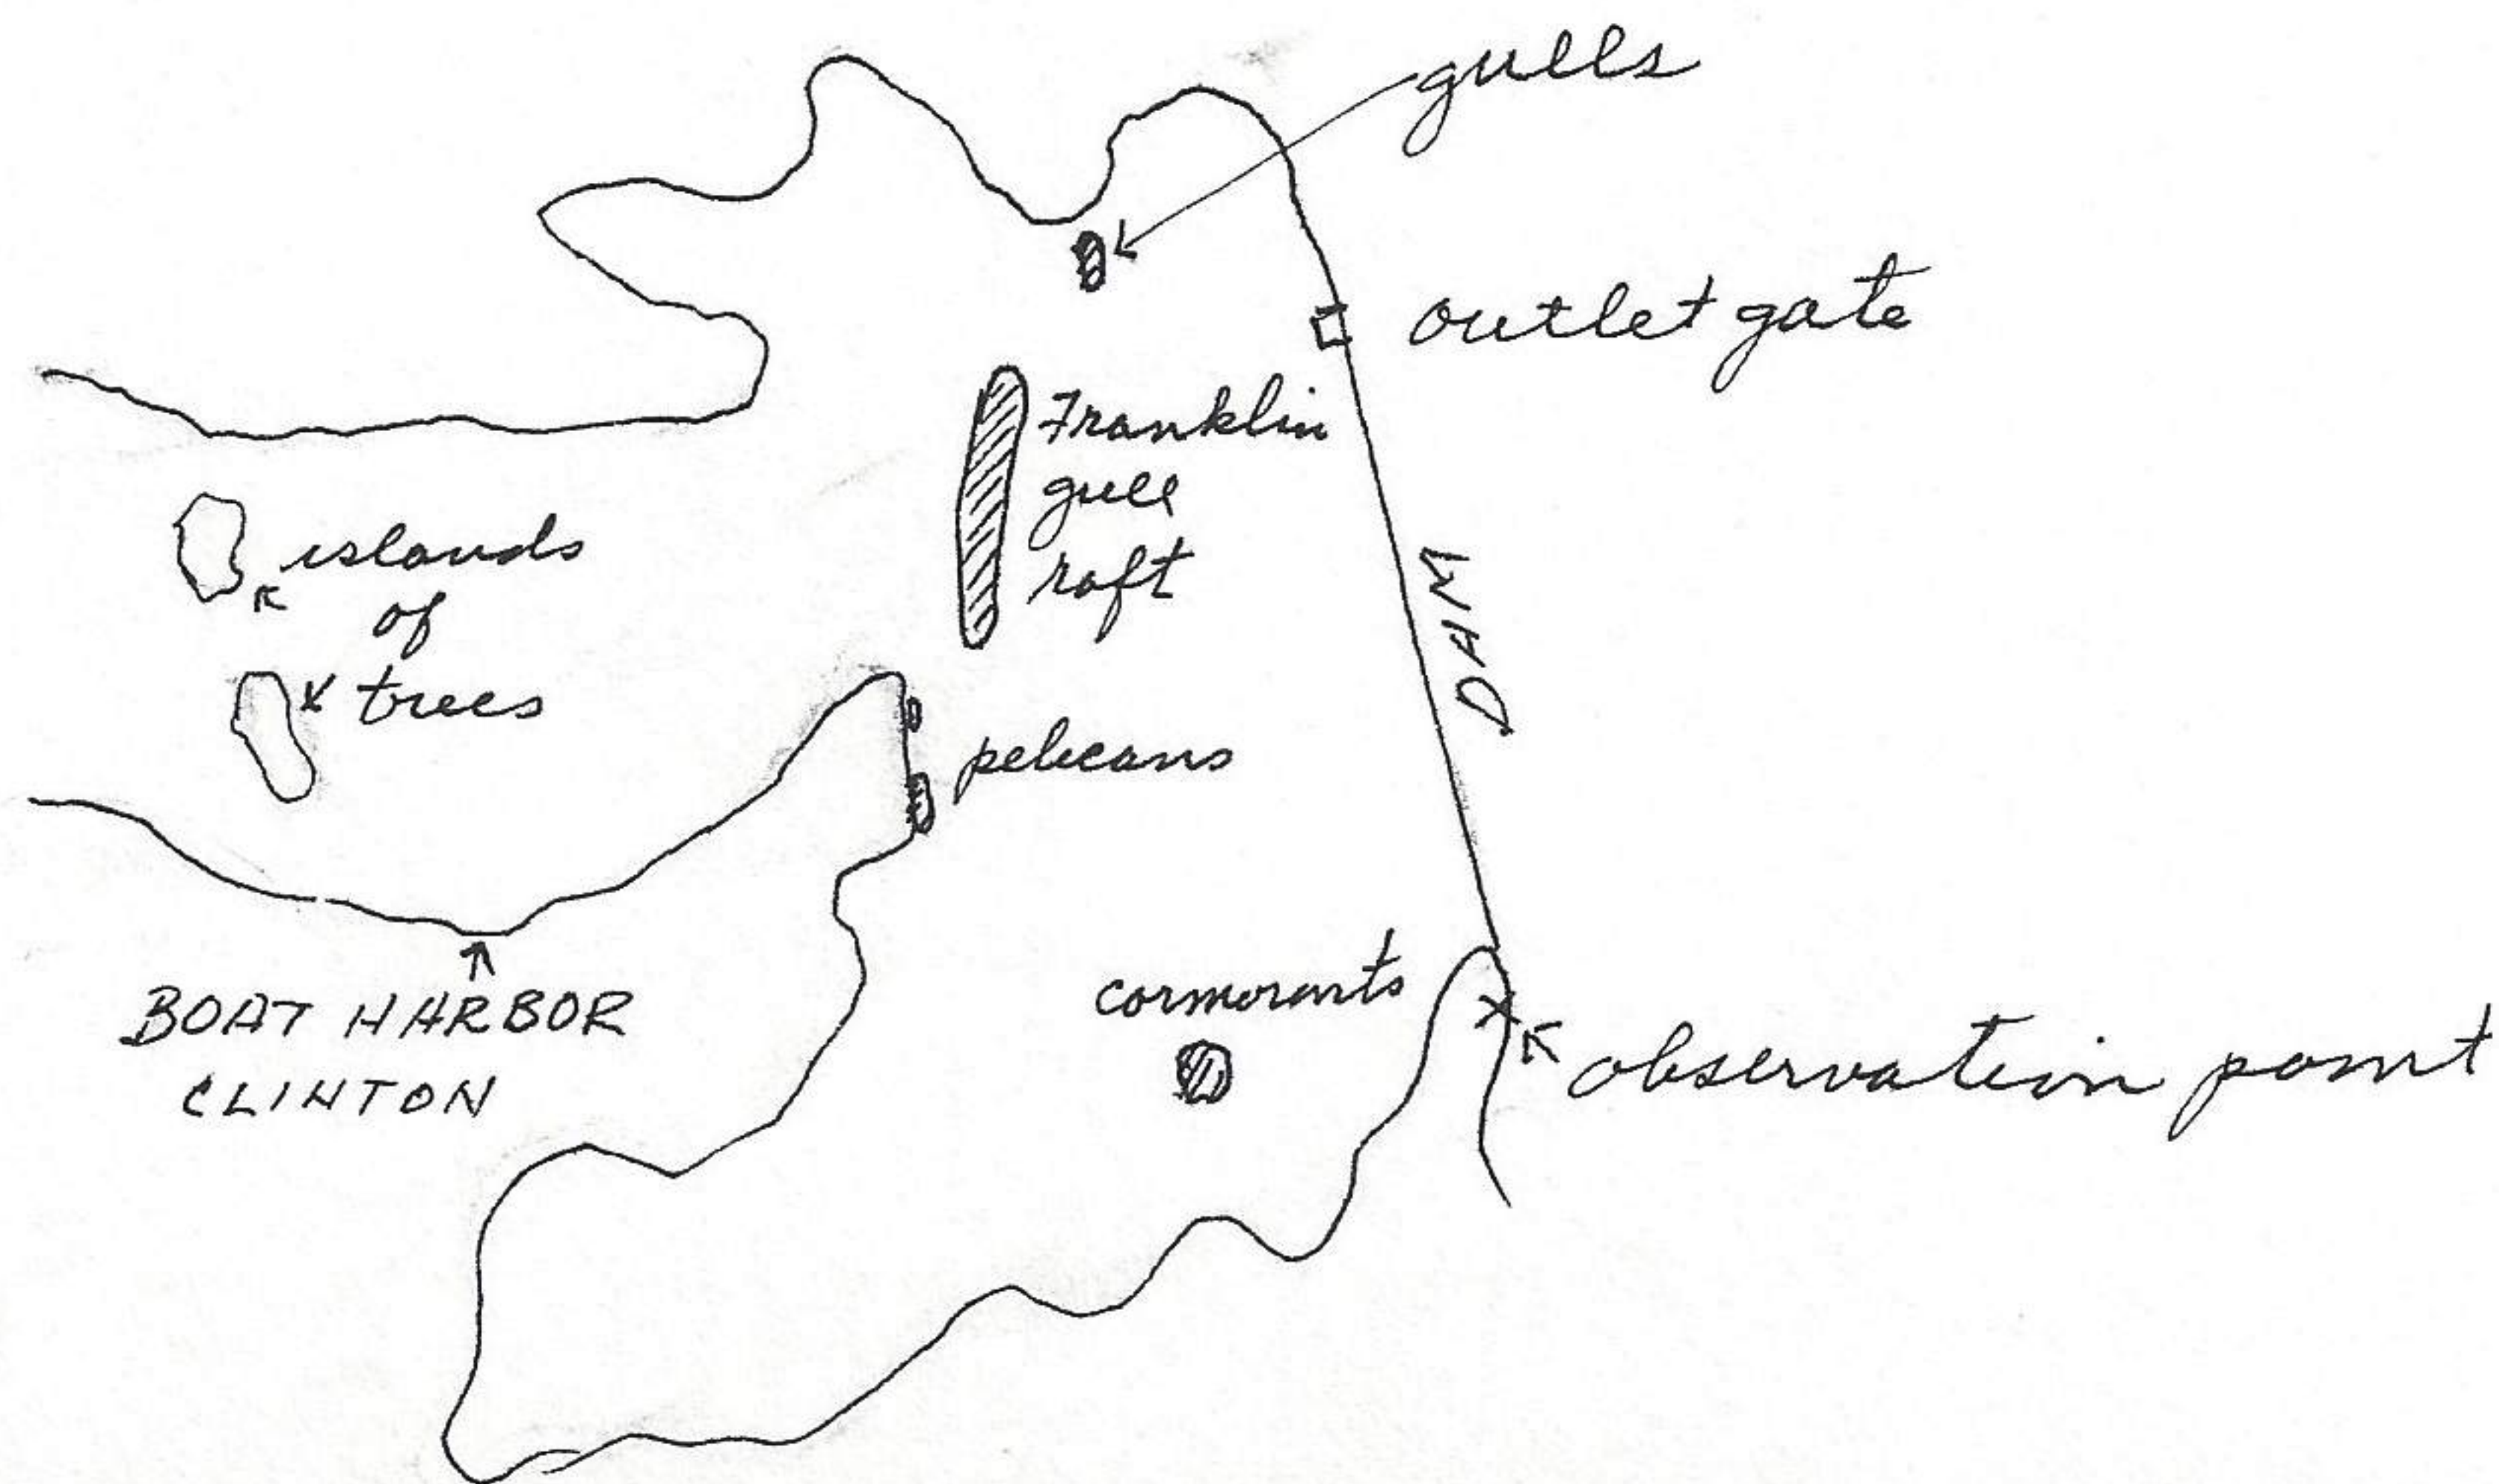 gulls
outlet gate
Franklin
gull
raft
DAM
islands
of
trees
pelicans
cormorants
BOAT HARBOR
CLINTON
observation point